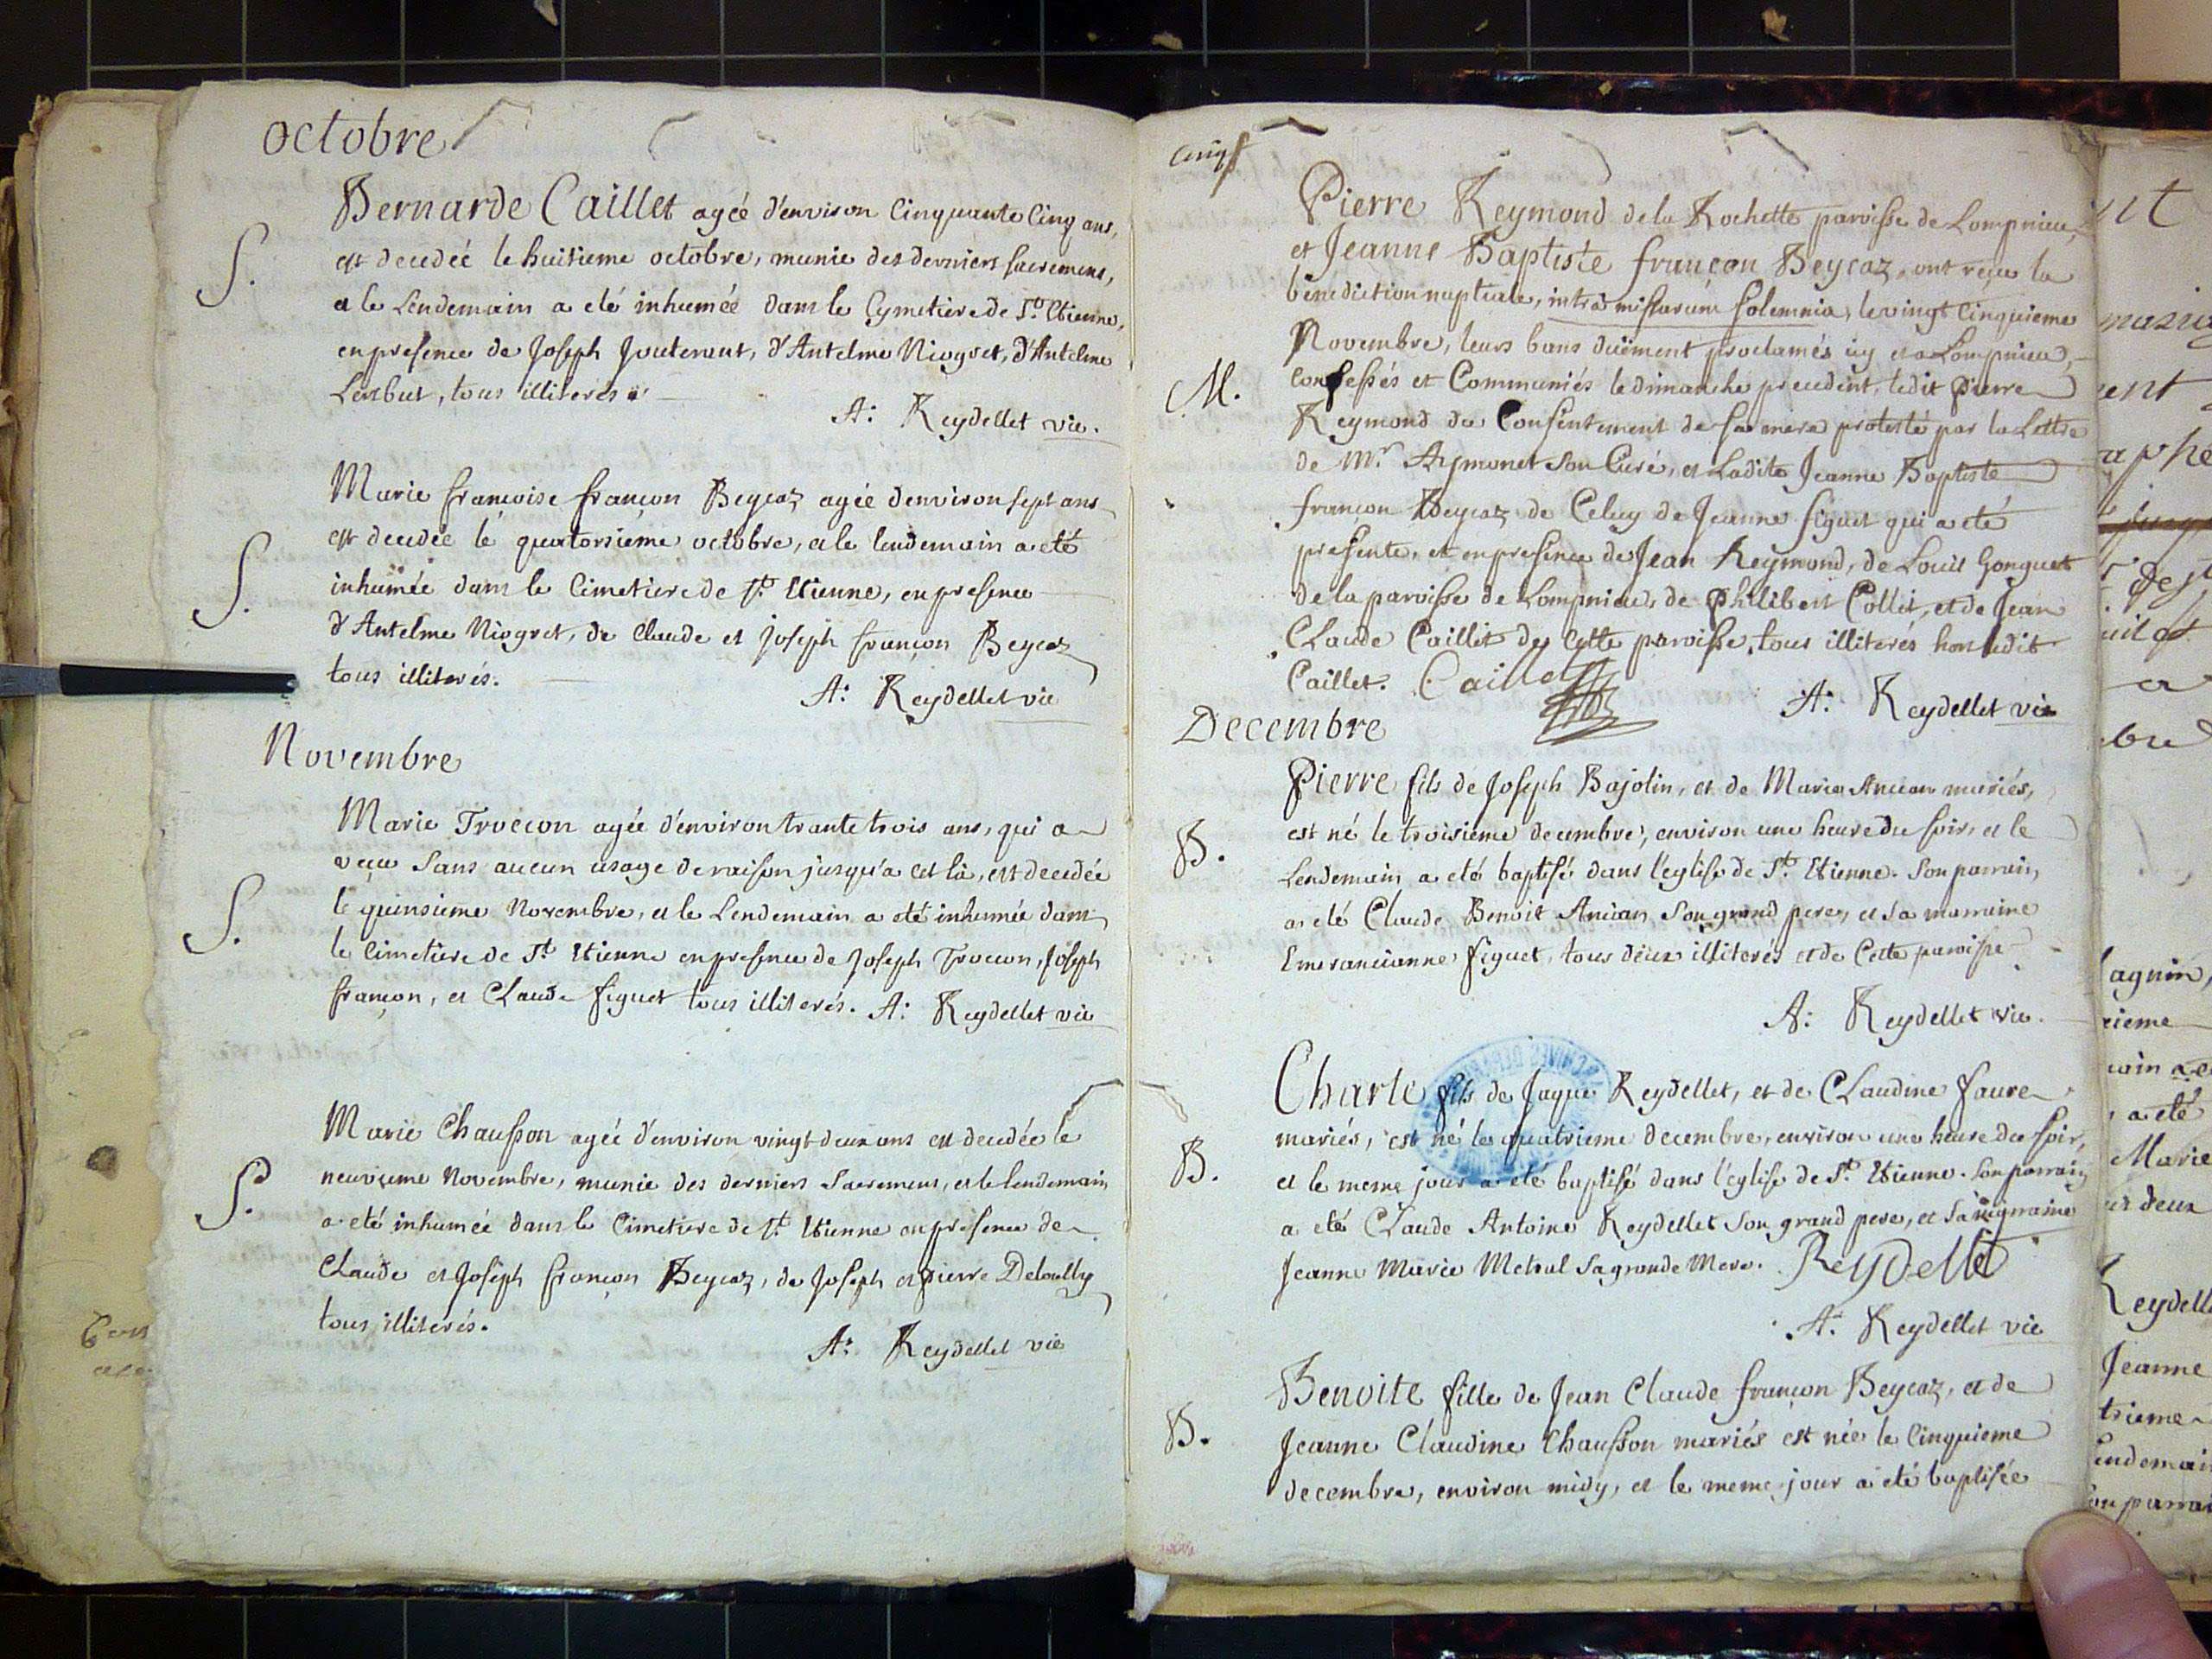 octobre
Bernarde Caillet agée d'environ Cinquante Cinq ans,
S.
est decedée le huitieme octobre, munie des derniers sacremens,
et le Lendemain a eté inhumée dans le Cymetiere de St. Etienne,
en presence de Joseph Jouterant, d'Antelme Niogret, d'Antelme
tous illiterés
A: Reydellet vic.
Marie françoise françon Beycaz agée d'environ sept ans
est decedée le quatorsieme octobre, et le lendemain a eté
S.
inhumée dans le Cimetiere de St. Etienne, en presence
d'Antelme Niogret, de Claude et Joseph françon Beycaz
tous illiterés.
A: Reydellet vic
Novembre
Marie Trocon agée d'environ trante trois ans, qui a
vecu sans aucun usage de raison jusqu'a cet là, est decedée
S.
le quinsieme Novembre, et le Lendemain a eté inhumée dans
le Cimetiere de St. Etienne en presence de Joseph Trocon, Joseph
françon, et Claude figuet tous illiterés. A: Reydellet vic
Marie Chausson agée d'environ vingt deux ans est decedée le
S.
neuvieme Novembre, munie des derniers Sacremens, et le lendemain
a eté inhumée dans le Cimetiere de St. Etienne en presence de
Claude et Joseph françon Beycaz, de Joseph et pierre Deloully
tous illiterés.
A: Reydellet vic
Pierre Reymond de la Rochette paroisse de Lompnieu,
et Jeanne Baptiste françon Beycaz, ont reçu la
bénédiction nuptiale, intra missarum solemnia, le vingt Cinquieme
Novembre, leurs bans duëment proclamés icy et a Lompnieu,
M.
confessés et Communiés le dimanche precedent, ledit pierre
Reymond du Consentement de sa mere protesté par la Lettre
de Mr. Aymonet son Curé, et Ladite Jeanne Baptiste
françon Beycaz de Celuy de Jeanne figuet qui a eté
presente, et en presence de Jean Reymond, de Louis Gonguet
de la paroisse de Lompnieu, de Philibert Collet, et de Jean
Claude Caillet de Cette paroisse, tous illiterés hors ledit
Caillet. Caillet
A: Reydellet vic
Decembre
Pierre fils de Joseph Bajolin, et de Marie Ancian mariés,
B.
est né le troisieme decembre, environ une heure du soir, et le
Lendemain a eté baptisé dans l'eglise de St. Etienne. Son parrain
a eté Claude Benoit Ancian Son grand pere, et sa marraine
Emeranciane figuet, tous deux illiterés et de Cette paroisse
A: Reydellet vic.
Charle fils de Jaque Reydellet, et de Claudine faure
mariés, est né le quatrieme decembre, environ une heure du soir,
B.
et le meme jour a eté baptisé dans l'eglise de St. Etienne. Son parrain
a eté Claude Antoine Reydellet Son grand pere, et sa marraine
Jeanne Marie Metral sa grande Mere. Reydellet
A: Reydellet vic
Benoite fille de Jean Claude françon Beycaz, et de
B.
Jeanne Claudine Chausson mariés est née le Cinquieme
decembre, environ midy, et le meme jour a eté baptisée